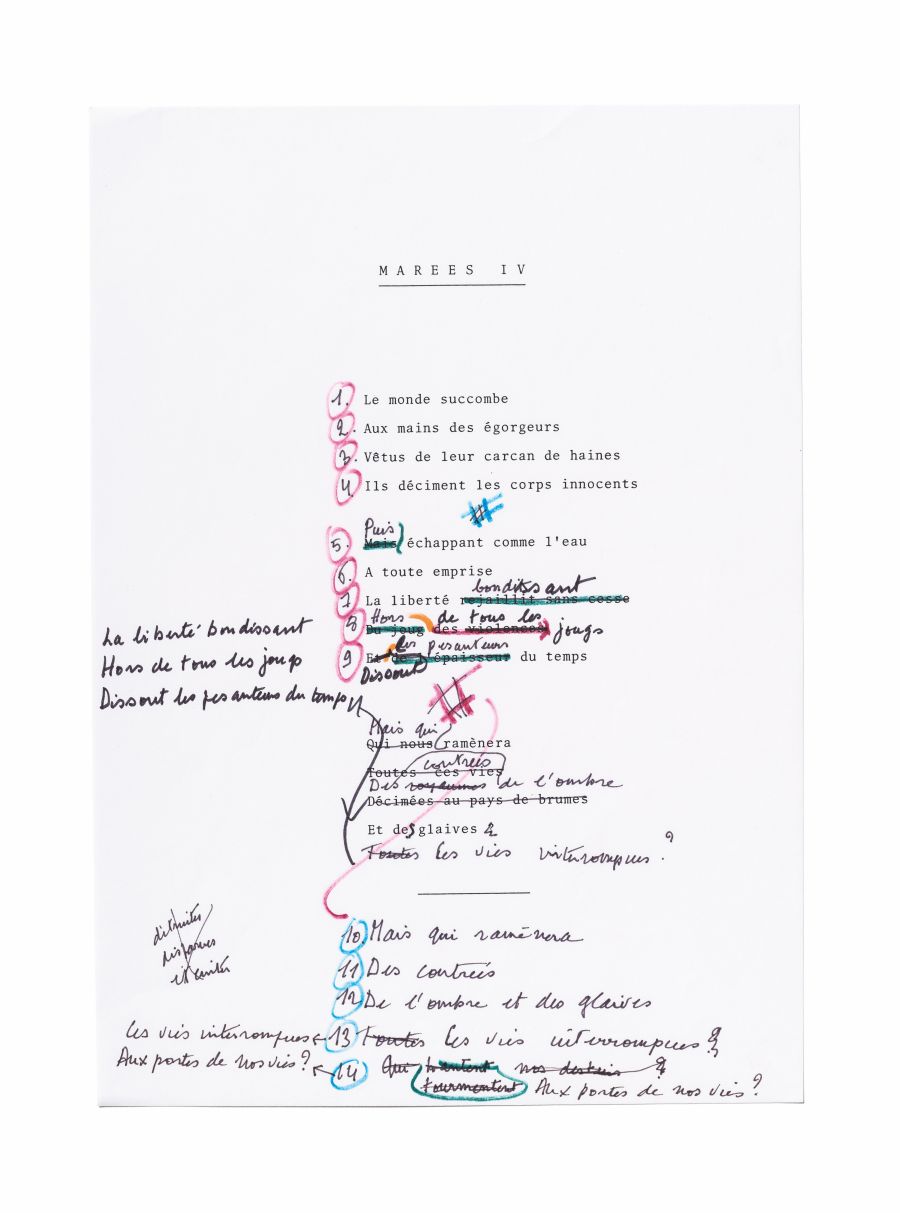 MAREES IV
1. Le monde succombe
2. Aux mains des égorgeurs
3. Vêtus de leur carcan de haines
4. Ils déciment les corps innocents
#
Puis
5. Mais échappant comme l'eau
6. A toute emprise
bondissant
7 La liberté rejaillit sans cesse
Hors de tous les
8 Du joug des violences jougs
les pesanteurs
9 Et de l'épaisseur du temps
Dissout
La liberté bondissant
Hors de tous les jougs
Dissout les pesanteurs du temps
#
Mais qui
Qui nous ramènera
contrées
Toutes ces vies
Des royaumes de l'ombre
Décimées au pays de brumes
Et des glaives
Toutes les vies interrompues ?
10. Mais qui ramènera
11 Des contrées
12 De l'ombre et des glaives
13 Toutes les vies interrompues ?
14 Qui hantent nos destins ?
tourmentent Aux portes de nos vies ?
détruites
disparues
Les vies interrompues
Aux portes de nos vies ?